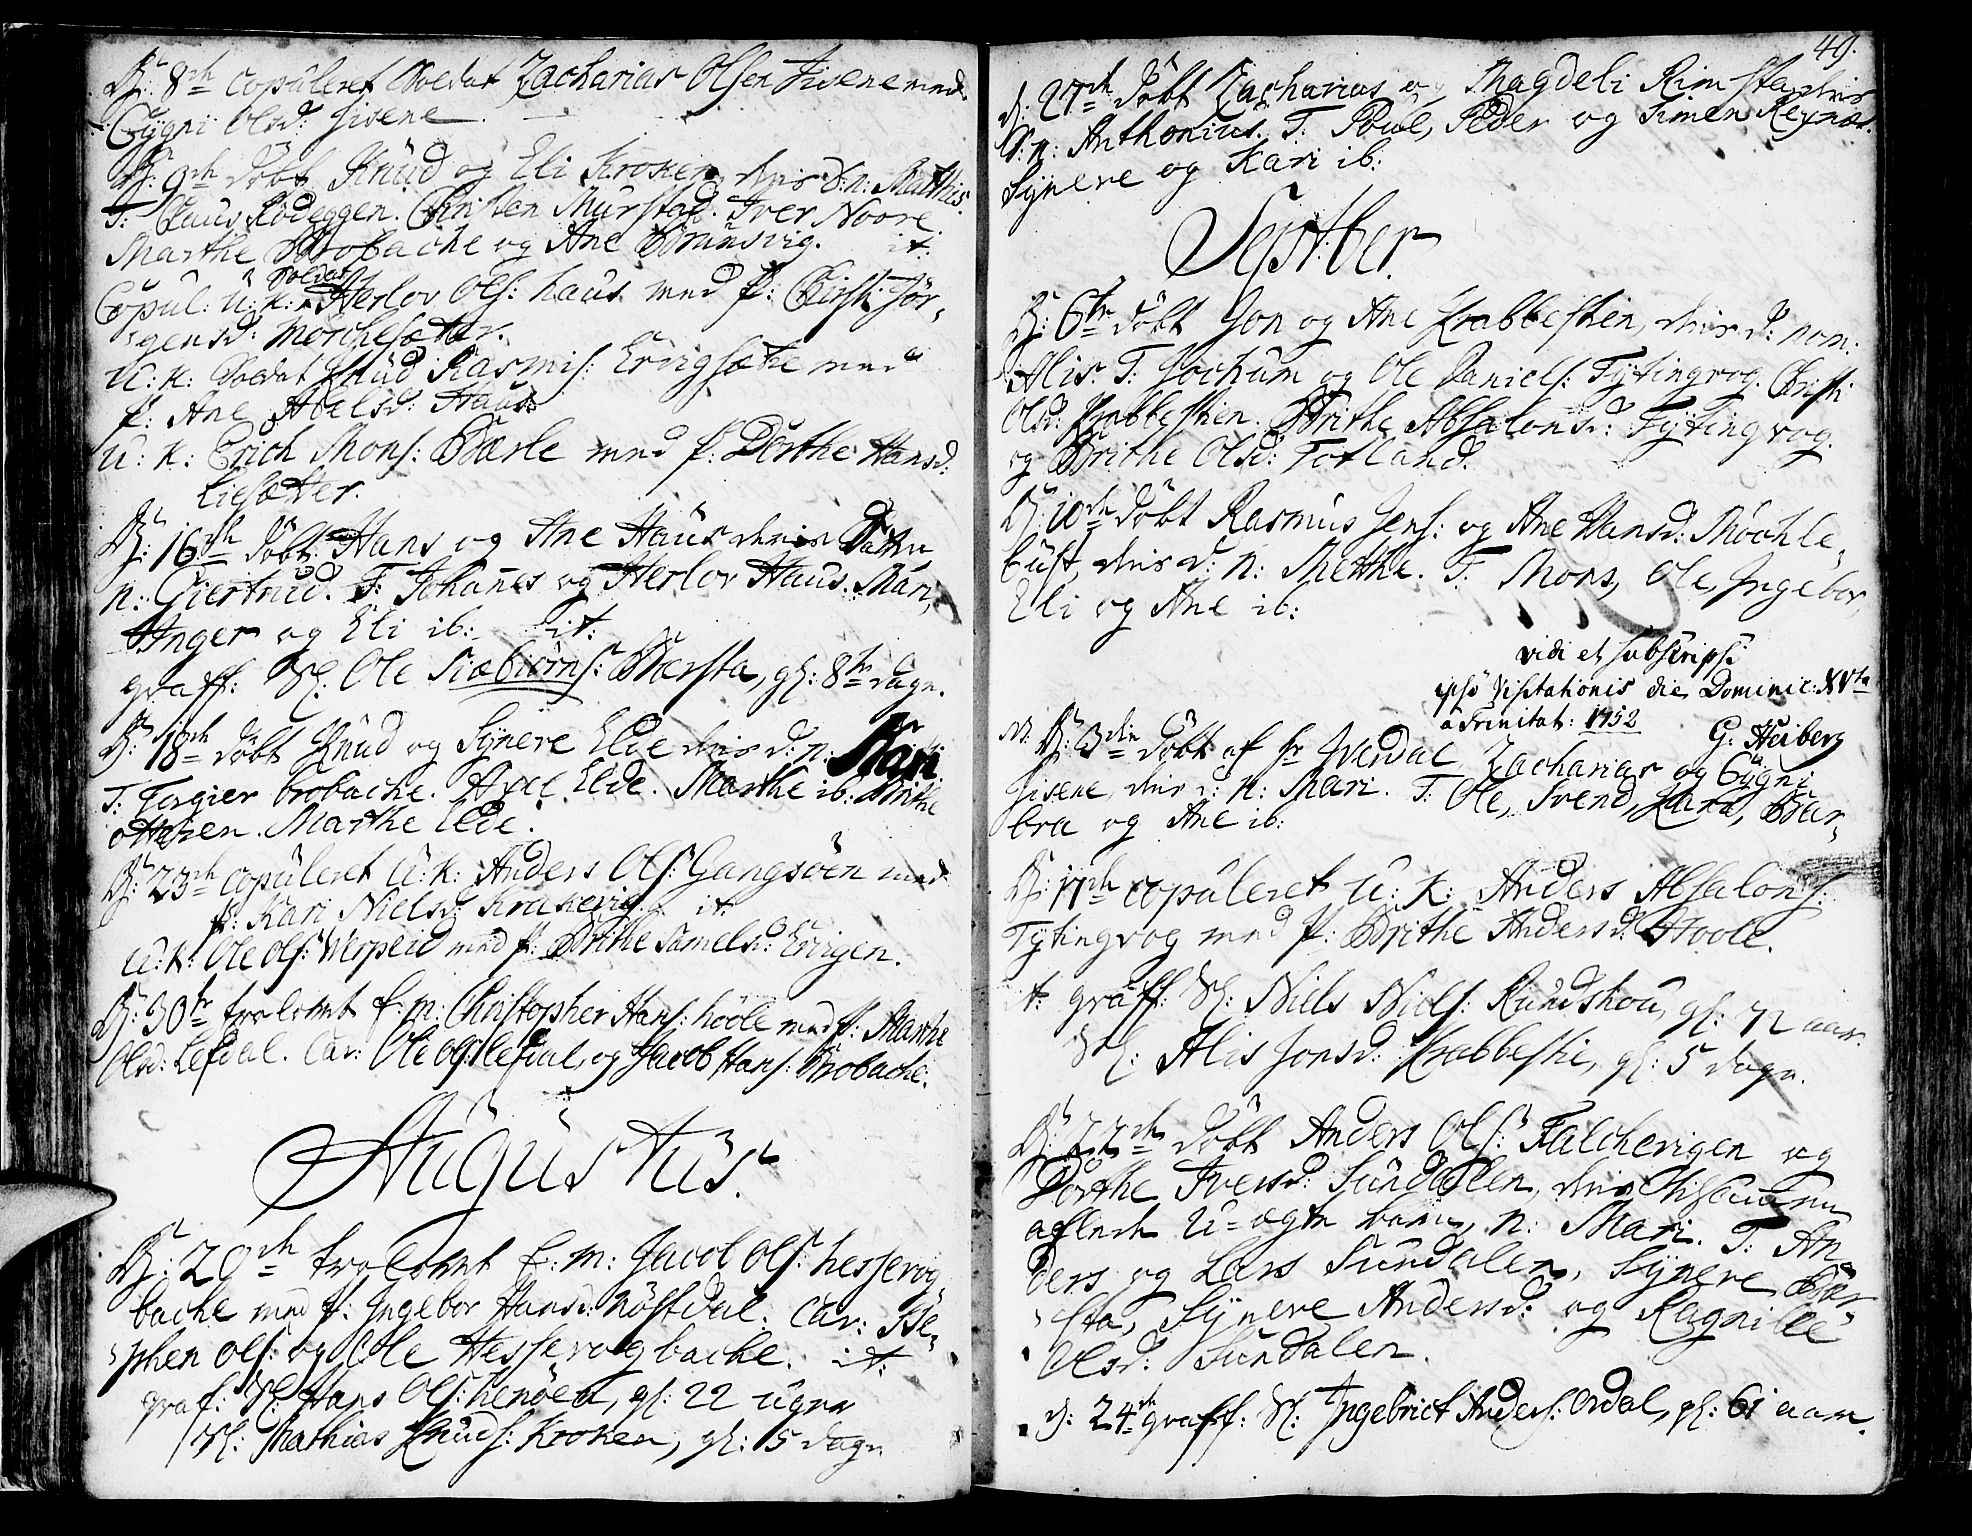 D: 8de copuleret Soldat Zacharias Olsen Jisene med
Gygni Olsd: Jisene
D: 9de döbt Knud og Eli Kroken, deris d: n: Mathis.
T: Claus Rödeggen. Christen Murstad. Iver Noore
Marthe Brobache og Ane Brunsvig. it:
Copul: U: K: Soldat Herlov Ols: Haus med P: Christi: Jör-
gensd: Morchesæter.
U: K: Soldat Knud Rasmis: Ervigsæthe med
P: Ane Abelsd: Haus
U: K: Erich Mons: Bærle med P: Dorthe Hansd:
Liesæter.
D: 16de döbt Hans og Ane Haus deris Datter
n: Giertrud. T: Johannes og Herlov Haus. Mari,
Inger og Eli ib: it:
graff: Sl: Ole Siæbiörns: Bærsta, gl: 8te dage.
D: 18de döbt Knud og Synere Elde deris d: n: Kari
T: Torgier brobache. Axel Elde. Marthe ib: Brithe
Otteren. Marthe Elde.
D: 23de copuleret U: K: Anders Ols: Gangsöen med
P: Kari Nielsd: Krakevig. it:
U: K: Ole Ols: Verpeid med P: Brithe Samelsd: Ervigen.
D: 30te trolovet E: m: Christopher Hans: hoole med P: Marthe
Olsd: Lefdal. Cav: Ole Ols: Lefdal, og Jacob Hans: Brobache.
Augustus.
D: 20de trolovet E: m: Jacob Ols: hessevog
bache med P: Ingebor Hansd: Nöstdal. Cav: Ste-
phen Ols: og Ole Hessevogbache. it:
graf: Sl: Hans Ols: Henöen, gl: 22 uger
Sl: Mathias Knuds: Kroken, gl: 5 dage
49.
d: 27de döbt Zacharias og Magdeli Rimsta deris
d: n: Anthonius. T: Powel, Peder og Simen Reynæs.
Synere og Kari ib:
Septber.
D: 6te döbt Jon og Ane Krabbestien, deris d: nom:
Alis. T: Jochum og Ole Daniels: Tytingvog. Christi
Olsd: Krabbestien. Brithe Absalonsd: Tytingvog.
og Brithe Olsd: Totland.
D: 10de döbt Rasmus Jens: og Ane Hansd: Möchle-
bust, deris d: n: Methe. T: Mons, Ole, Ingebor,
Eli og Ane ib:
vidi et subscripsi
ipso Visitationis die Dominic: XVta
a Trinitat: 1752 G: Heiberg
N: D: 3die döbt af hr Hverdal Zacharias og Gygni
Jisene, deris d: n: Mari. T: Ole, Svend, Lars, Bar-
bra og Ane ib:
D: 17de copuleret U: K: Anders Absalons:
Tytingvog med P: Brithe Andersd: Hoole.
it: graff: Sl: Niels Niels: Rundshou, gl: 72 aar.
Sl: Alis Jonsd: Krabbestie, gl: 5 dage.
D: 22de döbt Anders Ols: Falchevigen og
Dorthe Iversd: Sundalen, deris
aflede U-ægte barn, n: Mari. T: An-
ders og Lars Sundalen, Synere Bær-
sta, Synere Andersd: og Ragnille
Olsd: Sundalen.
d: 24de graff: Sl: Ingebrict Anders: Ordal, gl: 61 aar.